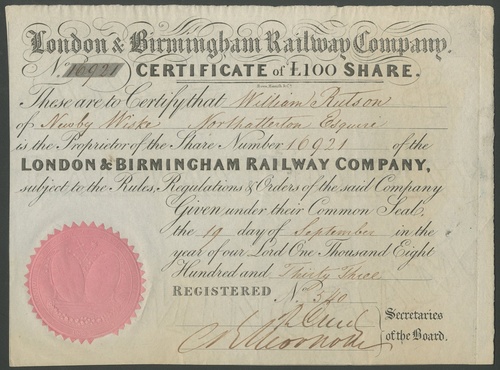 London & Birmingham Railway Company.
No. 16921 CERTIFICATE of £100 SHARE.
These are to Certify that William Rutson
of Newby Wiske Northallerton Esquire
is the Proprietor of the Share Number 16921 of the
LONDON & BIRMINGHAM RAILWAY COMPANY,
subject to the Rules, Regulations & Orders of the said Company
Given under their Common Seal,
the 19 day of September in the
year of our Lord One Thousand Eight
Hundred and Thirty Three
REGISTERED No. 340
Secretaries
of the Board.